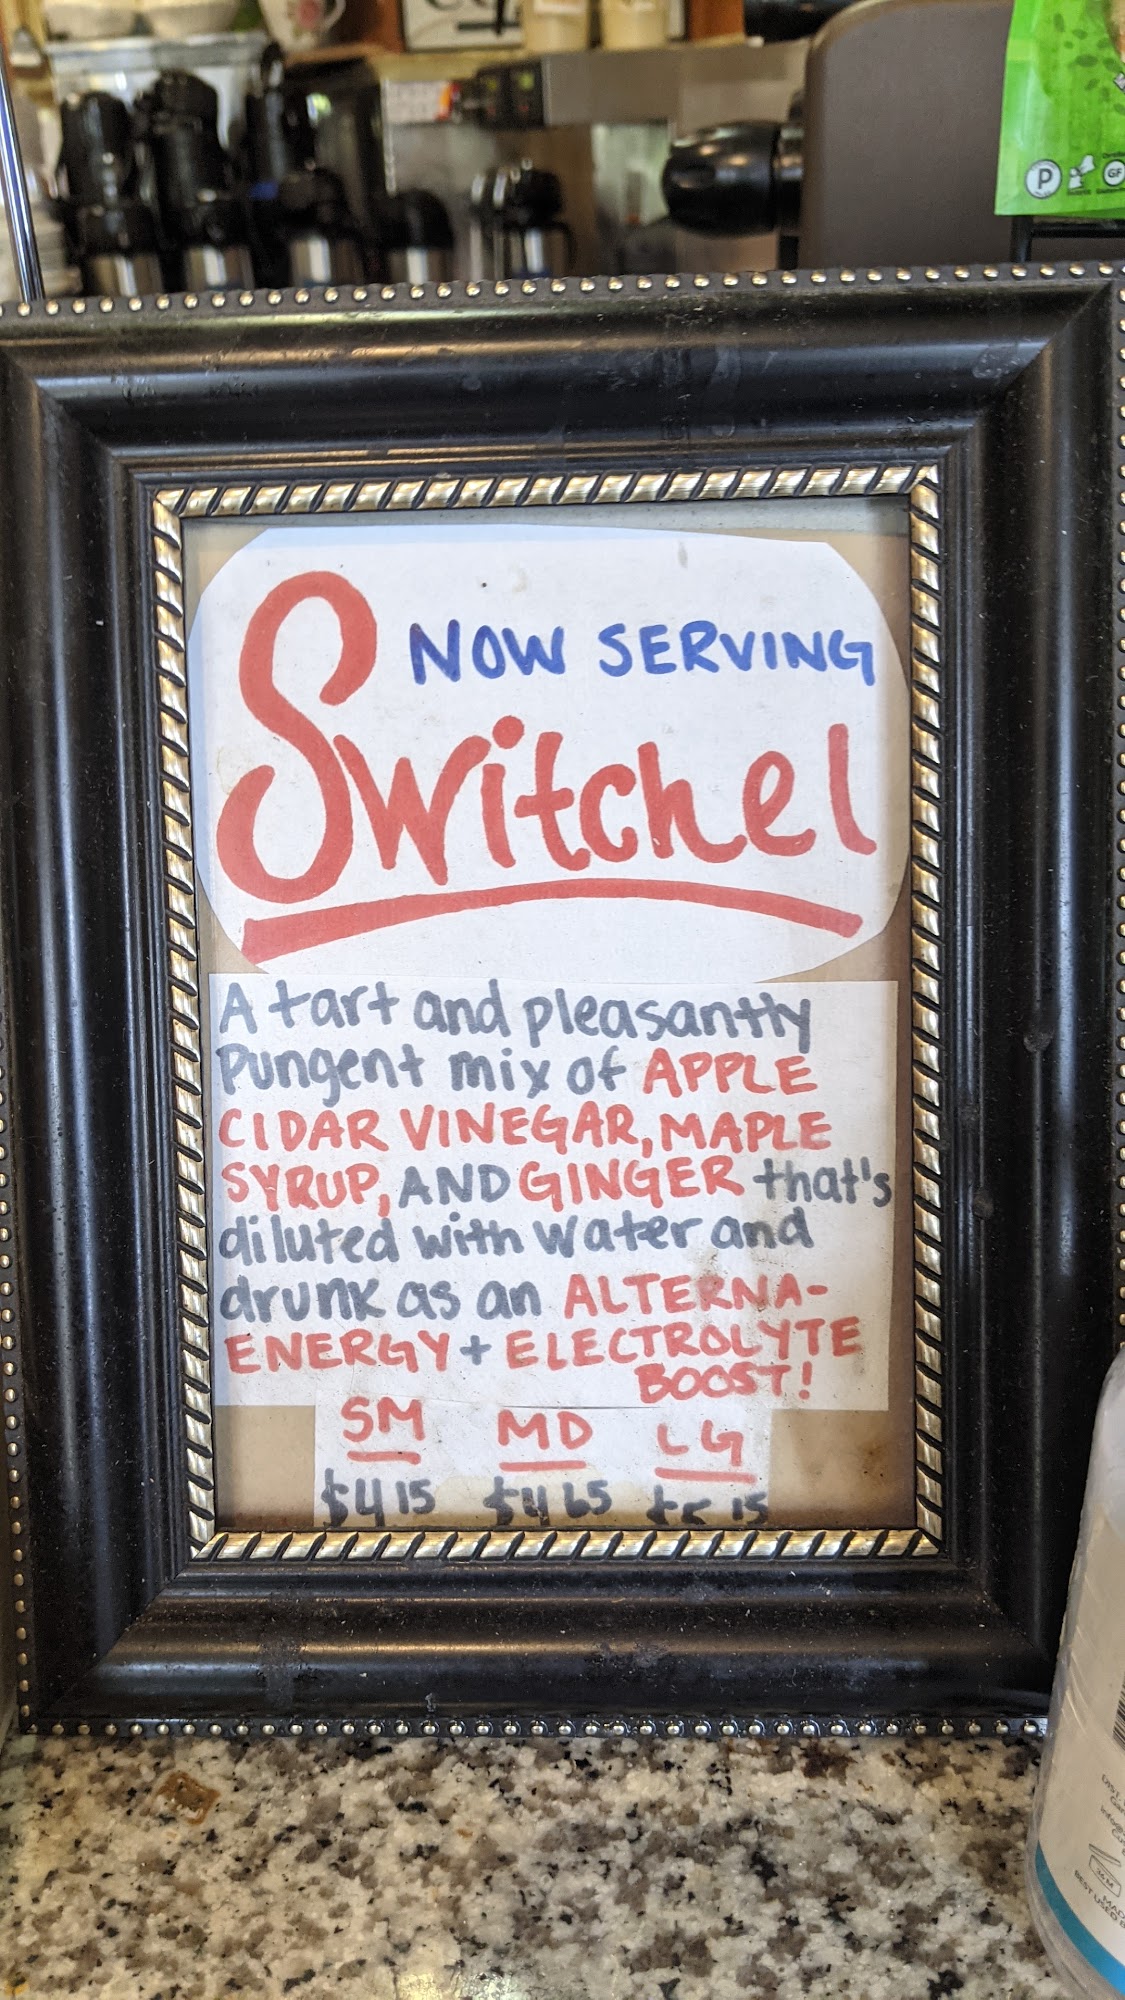 NOW SERVING
Switchel
A tart and pleasantly
Pungent mix of APPLE
CIDAR VINEGAR, MAPLE
SYRUP, AND GINGER that's
diluted with water and
drunk as an ALTERNA-
ENERGY + ELECTROLYTE
BOOST!
SM MD LG
$415 $465 $515
P
GF
36 M
BEST USED B